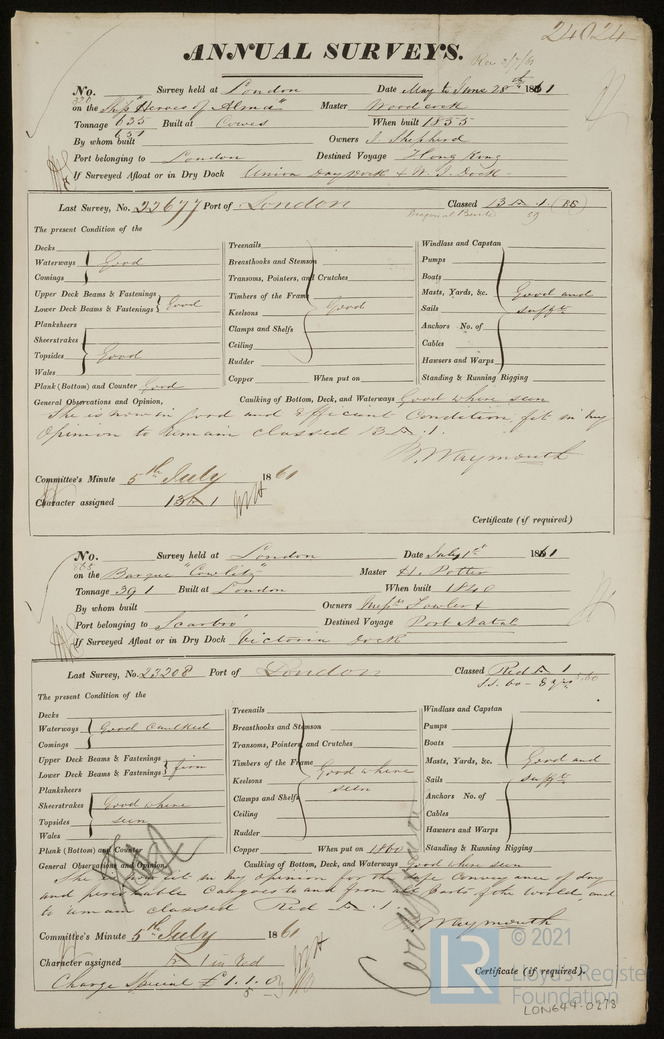 24024
ANNUAL SURVEYS.
No. Survey held at London Date May to June 28th 1861
on the Ship "Heroes of Alma" Master Woodcock
Tonnage 635 Built at Cowes When built 1855
631
By whom built Owners J. Shepherd
Port belonging to London Destined Voyage Hong Kong
If Surveyed Afloat or in Dry Dock Union Dry Dock & W. I. Dock
Last Survey, No. 22677 Port of London Classed 13 A. 1.
59
The present Condition of the
Decks
Waterways
Comings
Good
Upper Deck Beams & Fastenings
Lower Deck Beams & Fastenings
Good
Planksheers
Sheerstrakes
Topsides
Wales
Good
Plank (Bottom) and Counter Good
Treenails
Breasthooks and Stemson
Transoms, Pointers, and Crutches
Timbers of the Frame
Keelsons
Clamps and Shelfs
Ceiling
Rudder
Good
Copper When put on
Windlass and Capstan
Pumps
Boats
Masts, Yards, &c.
Sails
Anchors No. of
Cables
Hawsers and Warps
Good and
sufft
Standing & Running Rigging
General Observations and Opinion, Caulking of Bottom, Deck, and Waterways Good where seen
She is now in good and efficient condition, fit in my
opinion to remain classed 13 A. 1.
B. Waymouth
Committee's Minute 5th July 1861
Character assigned 13 A 1
Certificate (if required)
No. Survey held at London Date July 1st 1861
on the Barque "Cowlitz" Master H. Potter
Tonnage 391 Built at London When built 1840
By whom built Owners Messrs Fowler &
Port belonging to Scarbro' Destined Voyage Port Natal
If Surveyed Afloat or in Dry Dock Victoria Dock
Last Survey, No. 23208 Port of London Classed Red A 1
S.S. 60 - 8 yrs
The present Condition of the
Decks
Waterways
Comings
Good caulked
Upper Deck Beams & Fastenings
Lower Deck Beams & Fastenings
firm
Planksheers
Sheerstrakes
Topsides
Wales
Good where
seen
Plank (Bottom) and Counter
Treenails
Breasthooks and Stemson
Transoms, Pointers, and Crutches
Timbers of the Frame
Keelsons
Clamps and Shelfs
Ceiling
Rudder
Good where
seen
Copper When put on 1860
Windlass and Capstan
Pumps
Boats
Masts, Yards, &c.
Sails
Anchors No. of
Cables
Hawsers and Warps
Good and
sufft
Standing & Running Rigging
General Observations and Opinion, Caulking of Bottom, Deck, and Waterways Good where seen
She is now fit in my opinion for the safe conveyance of dry
and perishable Cargoes to and from all parts of the world, and
to remain classed Red A. 1.
B. Waymouth
Committee's Minute 5th July 1861
Character assigned A 1 in Red
Certificate (if required).
Charge Special £1.1.0
© 2021
LR
Lloyd's Register
Foundation
LON644-0273